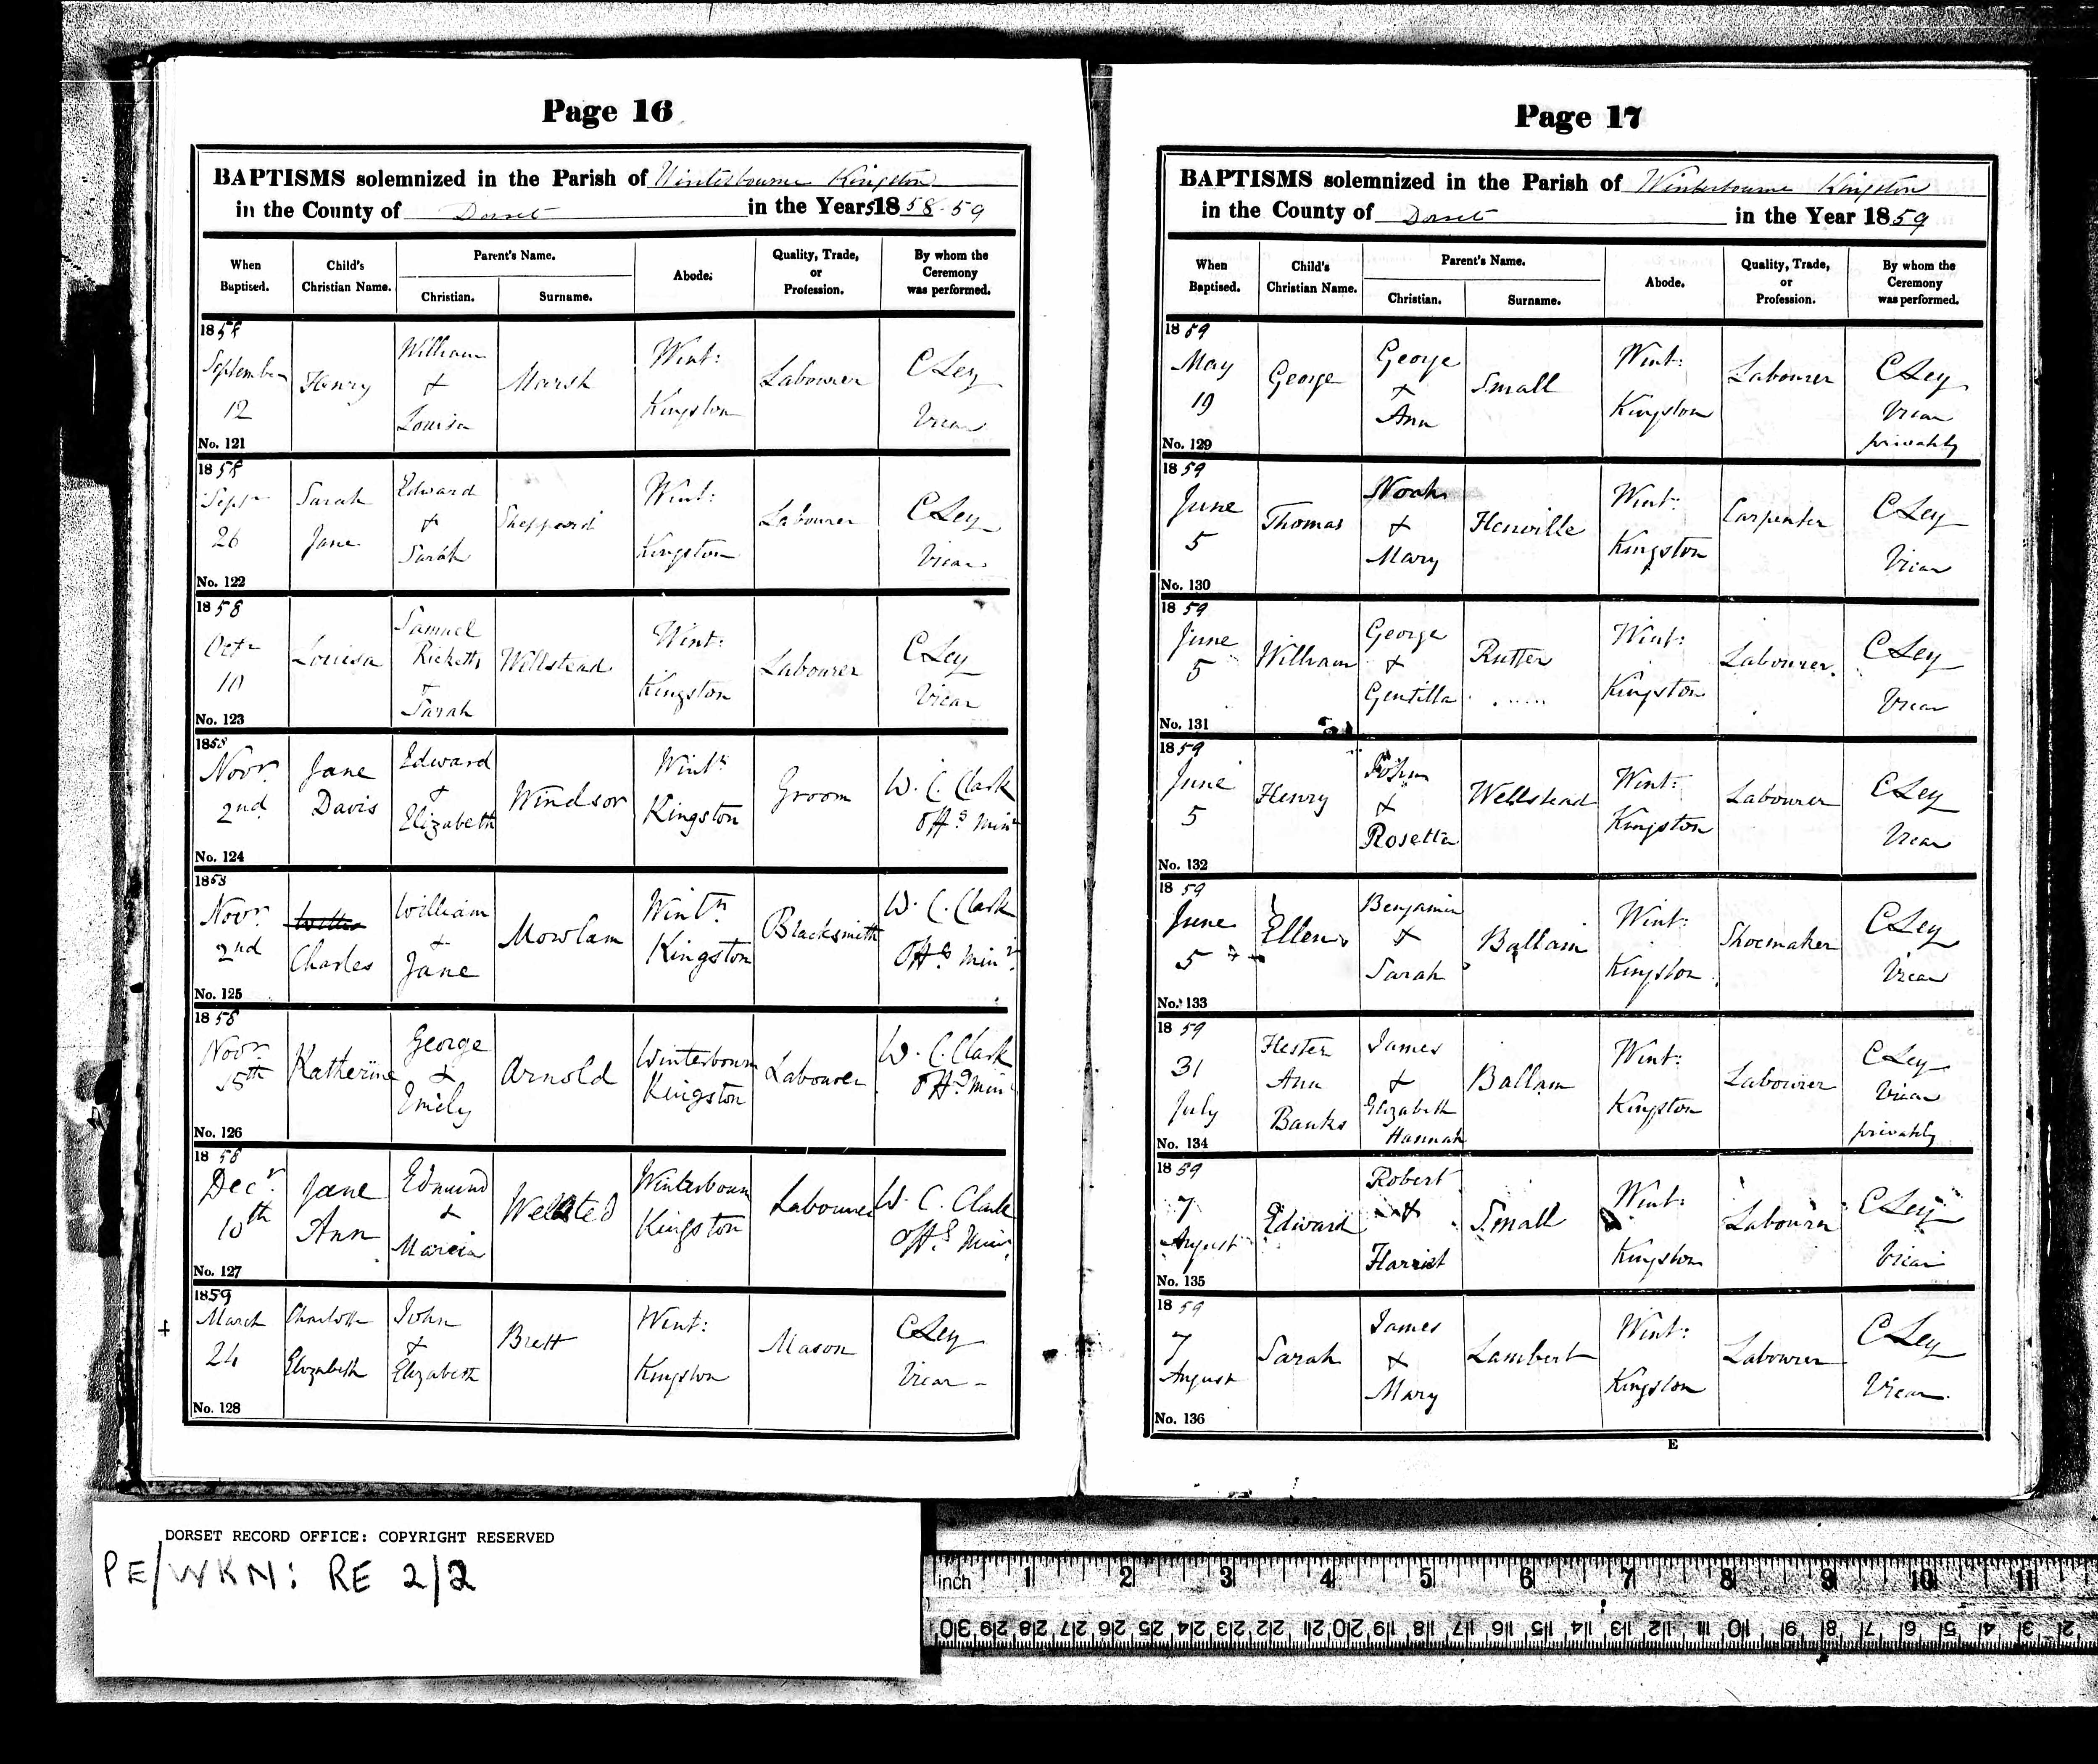 Page 16
BAPTISMS solemnized in the Parish of Winterbourne Kingston
in the County of Dorset in the Years 1858-59
When Baptised. Child's Christian Name. Parent's Name. Christian. Surname. Abode. Quality, Trade, or Profession. By whom the Ceremony was performed.
1858 September 12 Henry William & Louisa Marsh Wint: Kingston Labourer C Ley Vicar
No. 121
1858 Septr 26 Sarah Jane Edward & Sarah Sheppard Wint: Kingston Labourer C Ley Vicar
No. 122
1858 Octr 10 Louisa Samuel Ricketts Sarah Wellstead Wint: Kingston Labourer C Ley Vicar
No. 123
1858 Novr 2nd Jane Davis Edward & Elizabeth Windsor Wintn Kingston Groom W. C. Clark Offg Minr
No. 124
1858 Novr 2nd Charles William & Jane Mowlam Wintn Kingston Blacksmith W. C. Clark Offg Minr
No. 125
1858 Novr 15th Katherine George & Emily Arnold Winterbourn Kingston Labourer W. C. Clark Offg Minr
No. 126
1858 Decr 10th Jane Ann Edmund & Marcia Welsted Winterbourn Kingston Labourer W. C. Clark Offg Minr
No. 127
1859 March 24 Charlotte Elizabeth John & Elizabeth Brett Wint: Kingston Mason C Ley Vicar
No. 128
Page 17
BAPTISMS solemnized in the Parish of Winterbourne Kingston
in the County of Dorset in the Year 1859
When Baptised. Child's Christian Name. Parent's Name. Christian. Surname. Abode. Quality, Trade, or Profession. By whom the Ceremony was performed.
1859 May 19 George George & Ann Small Wint: Kingston Labourer C Ley Vicar privately
No. 129
1859 June 5 Thomas Noah & Mary Henville Wint: Kingston Carpenter C Ley Vicar
No. 130
1859 June 5 William George & Gentilla Rutter Wint: Kingston Labourer C Ley Vicar
No. 131
1859 June 5 Henry John & Rosetta Wellstead Wint: Kingston Labourer C Ley Vicar
No. 132
1859 June 5 Ellen Benjamin & Sarah Ballam Wint: Kingston Shoemaker C Ley Vicar
No. 133
1859 31 July Hester Ann Banks James & Elizabeth Hannah Ballam Wint: Kingston Labourer C Ley Vicar privately
No. 134
1859 7 August Edward Robert & Harriet Small Wint: Kingston Labourer C Ley Vicar
No. 135
1859 7 August Sarah James & Mary Lambert Wint: Kingston Labourer C Ley Vicar
No. 136
E
DORSET RECORD OFFICE: COPYRIGHT RESERVED
PE/WKN: RE 2/2
inch 1 2 3 4 5 6 7 8 9 10 11
30 29 28 27 26 25 24 23 22 21 20 19 18 17 16 15 14 13 12 11 10 9 8 7 6 5 4 3 2